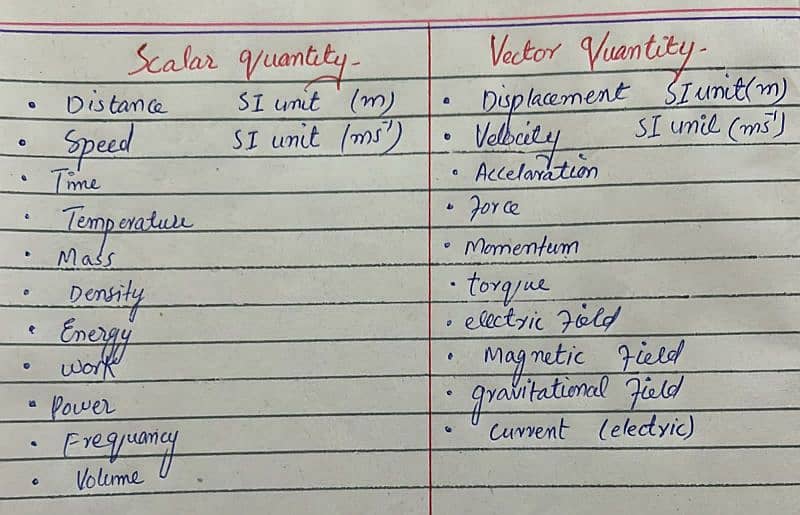 Scalar quantity-
• Distance SI unit (m)
• Speed SI unit (ms⁻¹)
• Time
• Temperature
• Mass
• Density
• Energy
• Work
• Power
• Frequancy
• Volume
Vector Quantity-
• Displacement SI unit (m)
• Velocity SI unit (ms⁻¹)
• Accelaration
• Force
• Momentum
• torque
• electric Field
• Magnetic Field
• gravitational Field
• Current (electric)